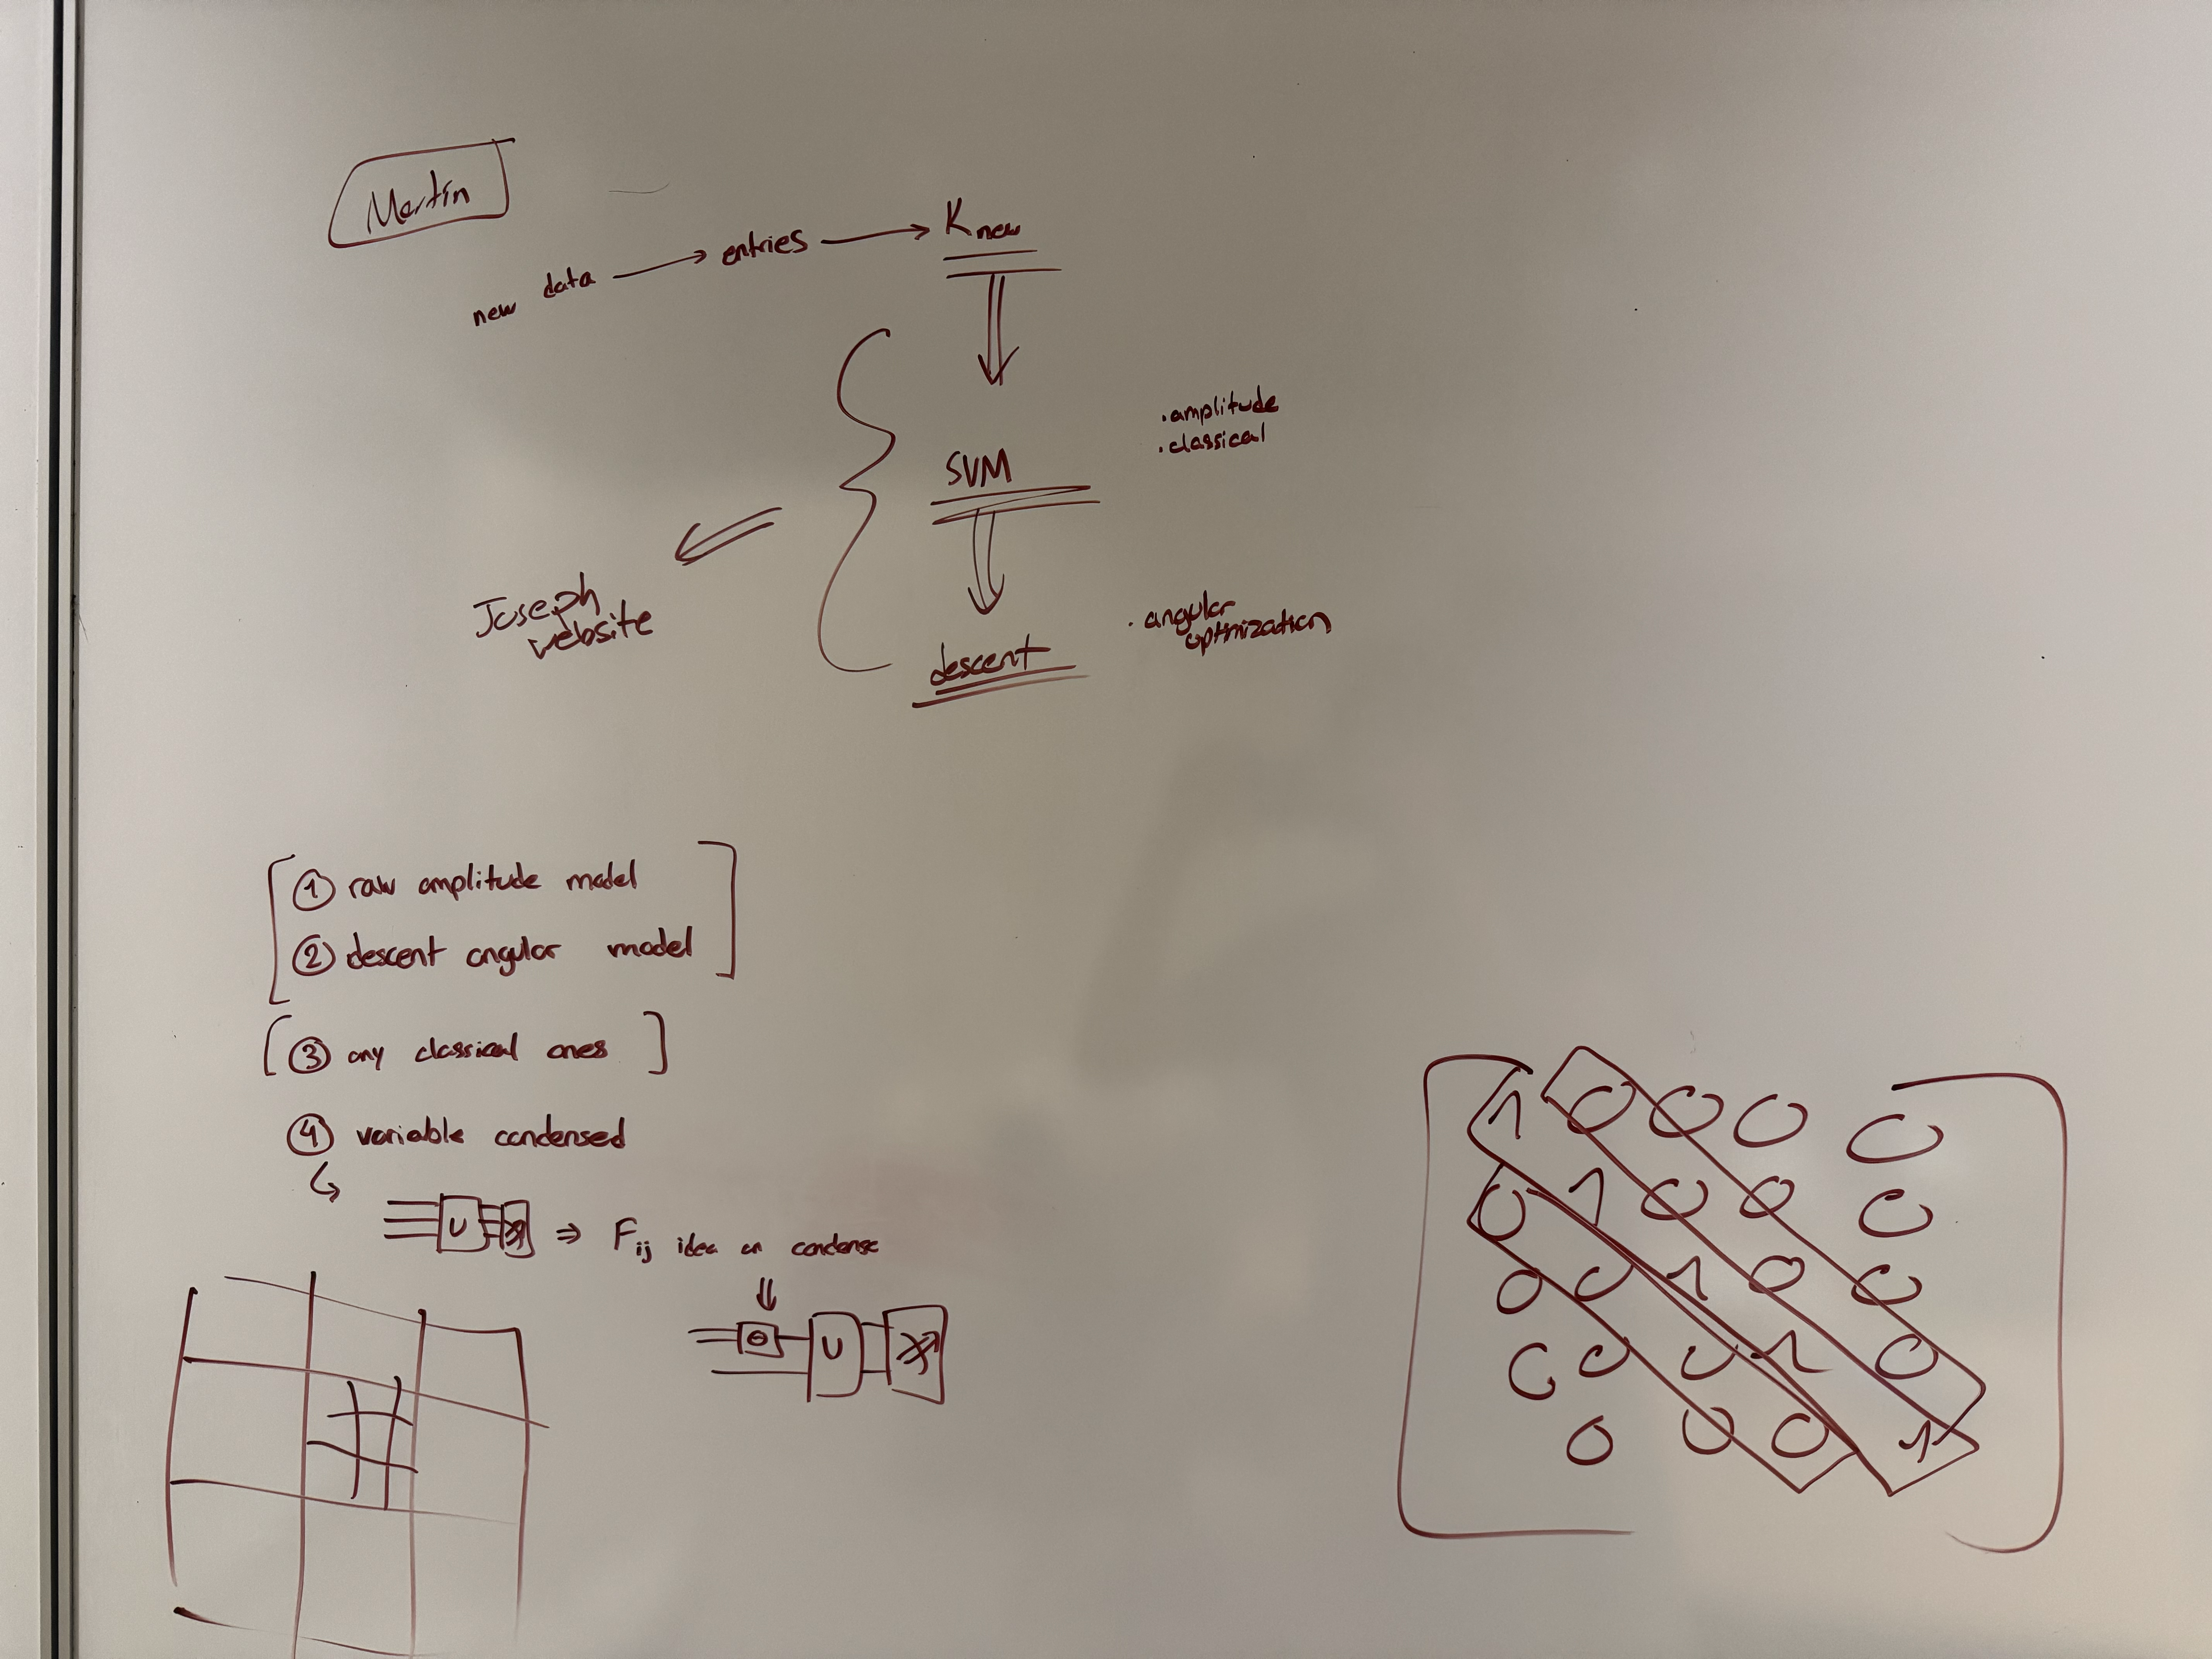 Martin
new data → entries → K_new
· amplitude
· classical
SVM
Joseph
website
· angular
optimization
descent
① raw amplitude model
② descent angular model
③ any classical ones
④ variable condensed
U ⇒ F_ij idea on condense
Θ U
1 0 0 0 0
0 1 0 0 0
0 0 1 0 0
0 0 0 1 0
0 0 0 1